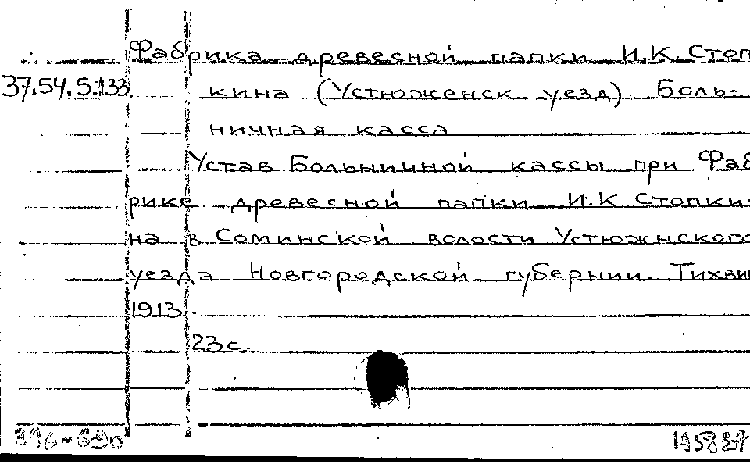 Фабрика древесной папки И.К. Стоп-
37.54.5.133
кина (Устюженск. уезд) Боль-
ничная касса
Устав Больничной кассы при Фаб
рике древесной папки И.К Стопки-
на в Соминской волости Устюжнского
уезда Новгородской губернии. Тихвин
1913.
23с.